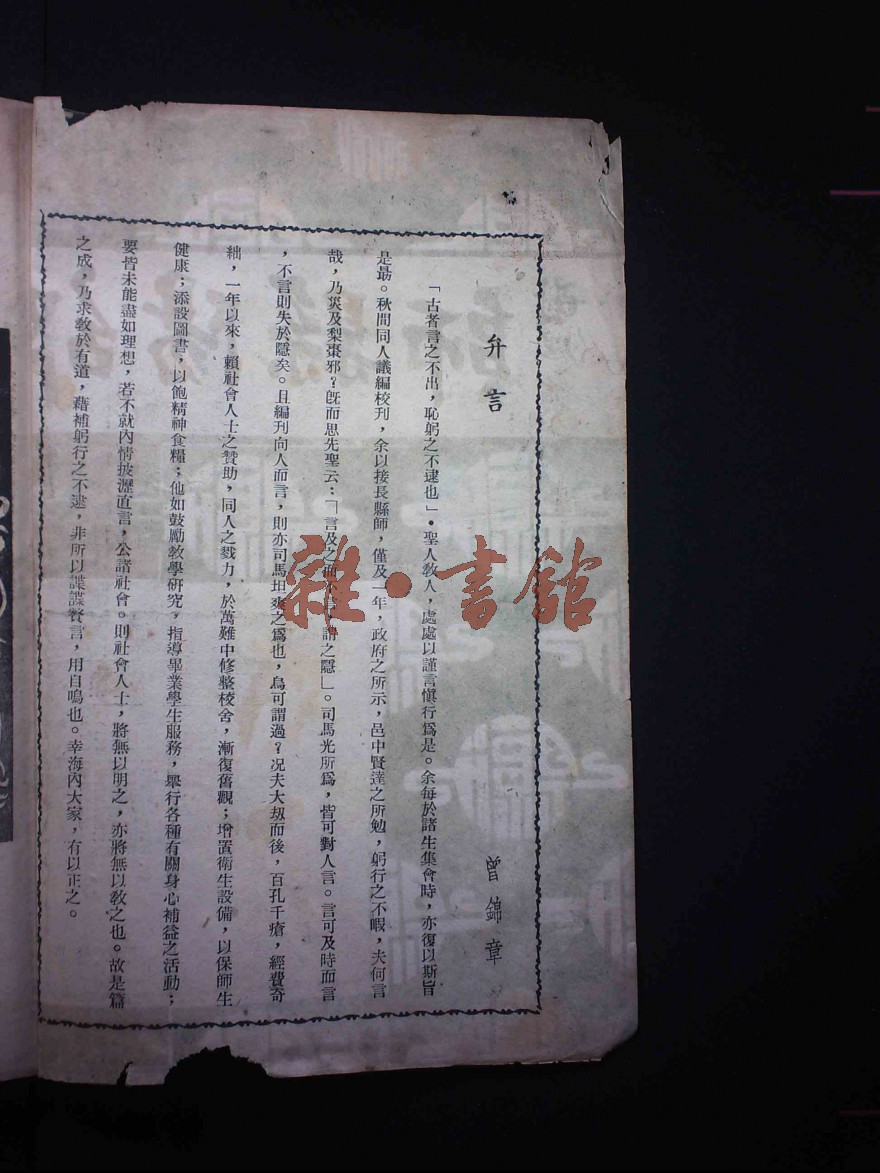 弁言
曾錦章
「古者言之不出，恥躬之不逮也」。聖人教人，處處以謹言愼行爲是。余每於諸生集會時，亦復以斯旨
是勗。秋間同人議編校刊，余以接長縣師，僅及一年，政府之所示，邑中賢達之所勉，躬行之不暇，夫何言
哉，乃災及梨棗邪？旣而思先聖云：「言及之而不言謂之隱」。司馬光所爲，皆可對人言。言可及時而言
，不言則失於隱矣。且編刊向人而言，則亦司馬坦爽之爲也，烏可謂過？况夫大刼而後，百孔千瘡，經費奇
絀，一年以來，賴社會人士之贊助，同人之戮力，於萬難中修整校舍，漸復舊觀；增置衛生設備，以保師生
健康；添設圖書，以飽精神食糧；他如鼓勵敎學硏究，指導畢業學生服務，舉行各種有關身心補益之活動；
要皆未能盡如理想，若不就內情披瀝直言，公諸社會。則社會人士，將無以明之，亦將無以敎之也。故是篇
之成，乃求敎於有道，藉補躬行之不逮，非所以諜諜贅言，用自鳴也。幸海內大家，有以正之。
雜·書館